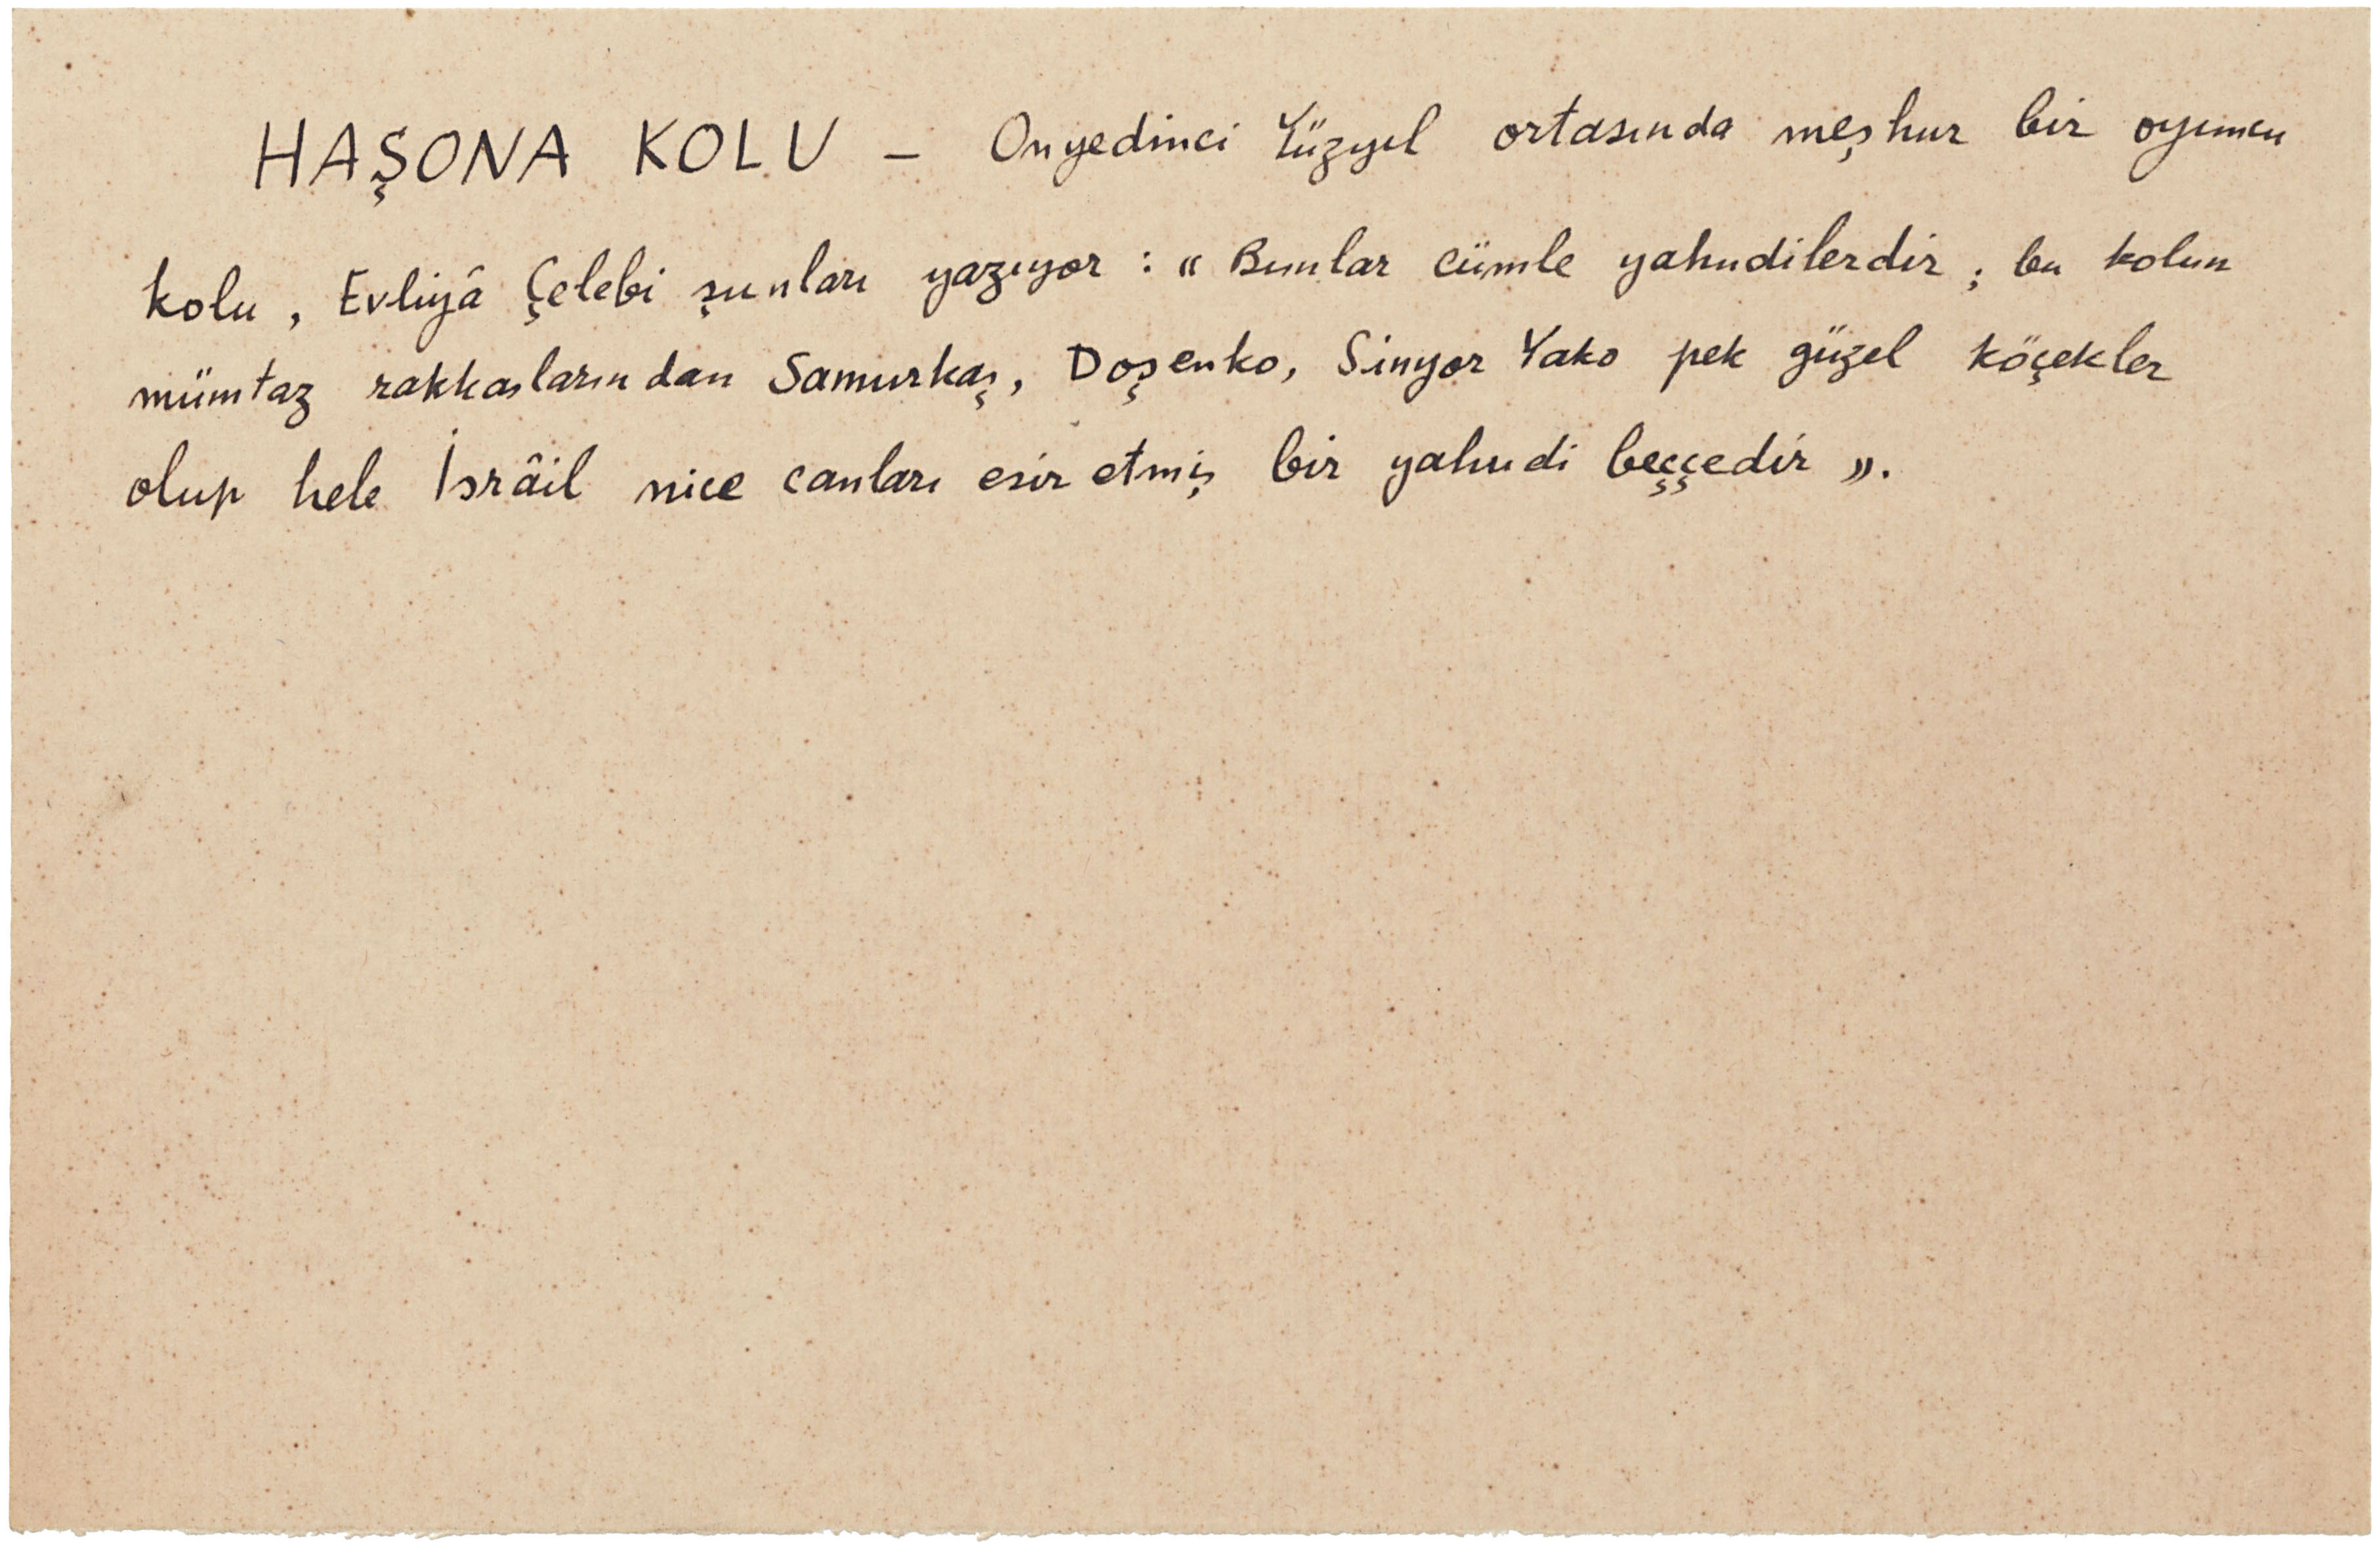 HAŞONA KOLU – Onyedinci Yüzyıl ortasında meşhur bir oyuncu
kolu, Evliyâ Çelebi şunları yazıyor : « Bunlar cümle yahudilerdir ; bu kolun
mümtaz rakkaslarından Samurkaş, Doşenko, Sinyor Yako pek güzel köçekler
olup hele İsrâil nice canları esir etmiş bir yahudi beççedir ».